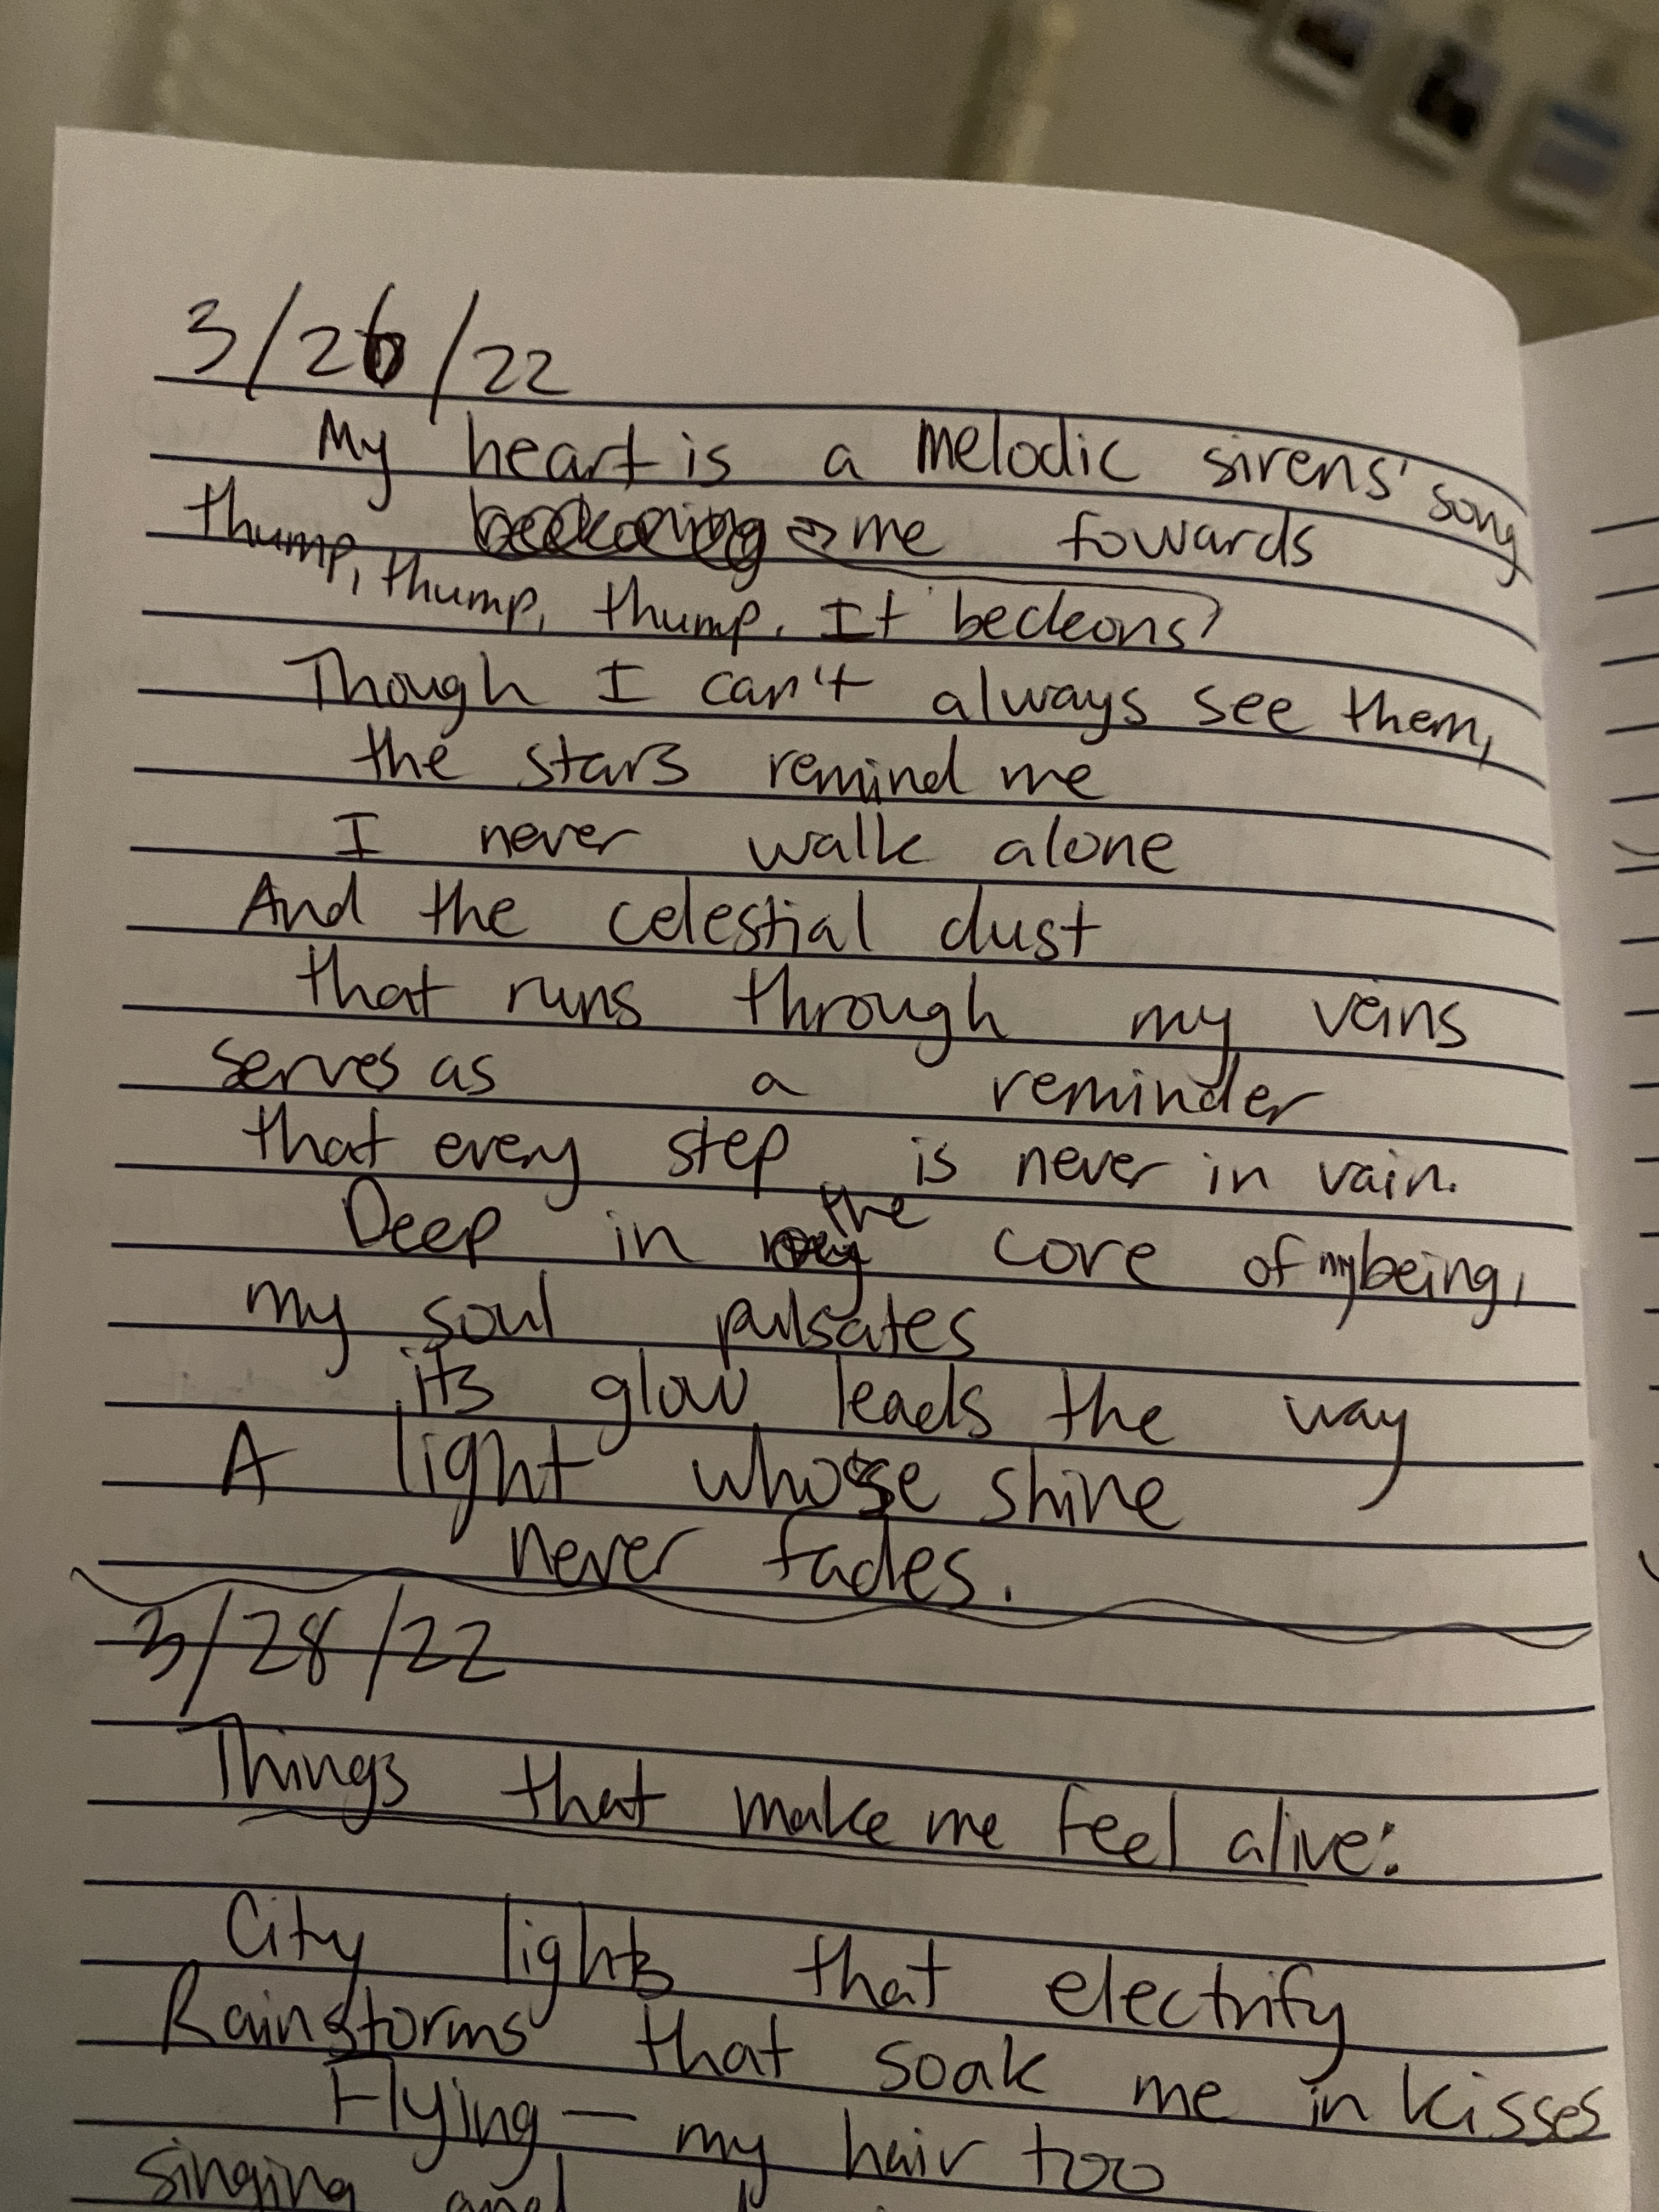 3/26/22
My heart is a melodic sirens' song
thump, thump, thump. It beckons
me towards
Though I can't always see them,
the stars remind me
I never walk alone
And the celestial dust
that runs through my veins
serves as a reminder
that every step is never in vain.
Deep in the core of my being,
my soul pulsates
its glow leads the way
A light whose shine
never fades.
3/28/22
Things that make me feel alive:
City lights that electrify
Rainstorms that soak me in kisses
Flying — my hair too
singing and